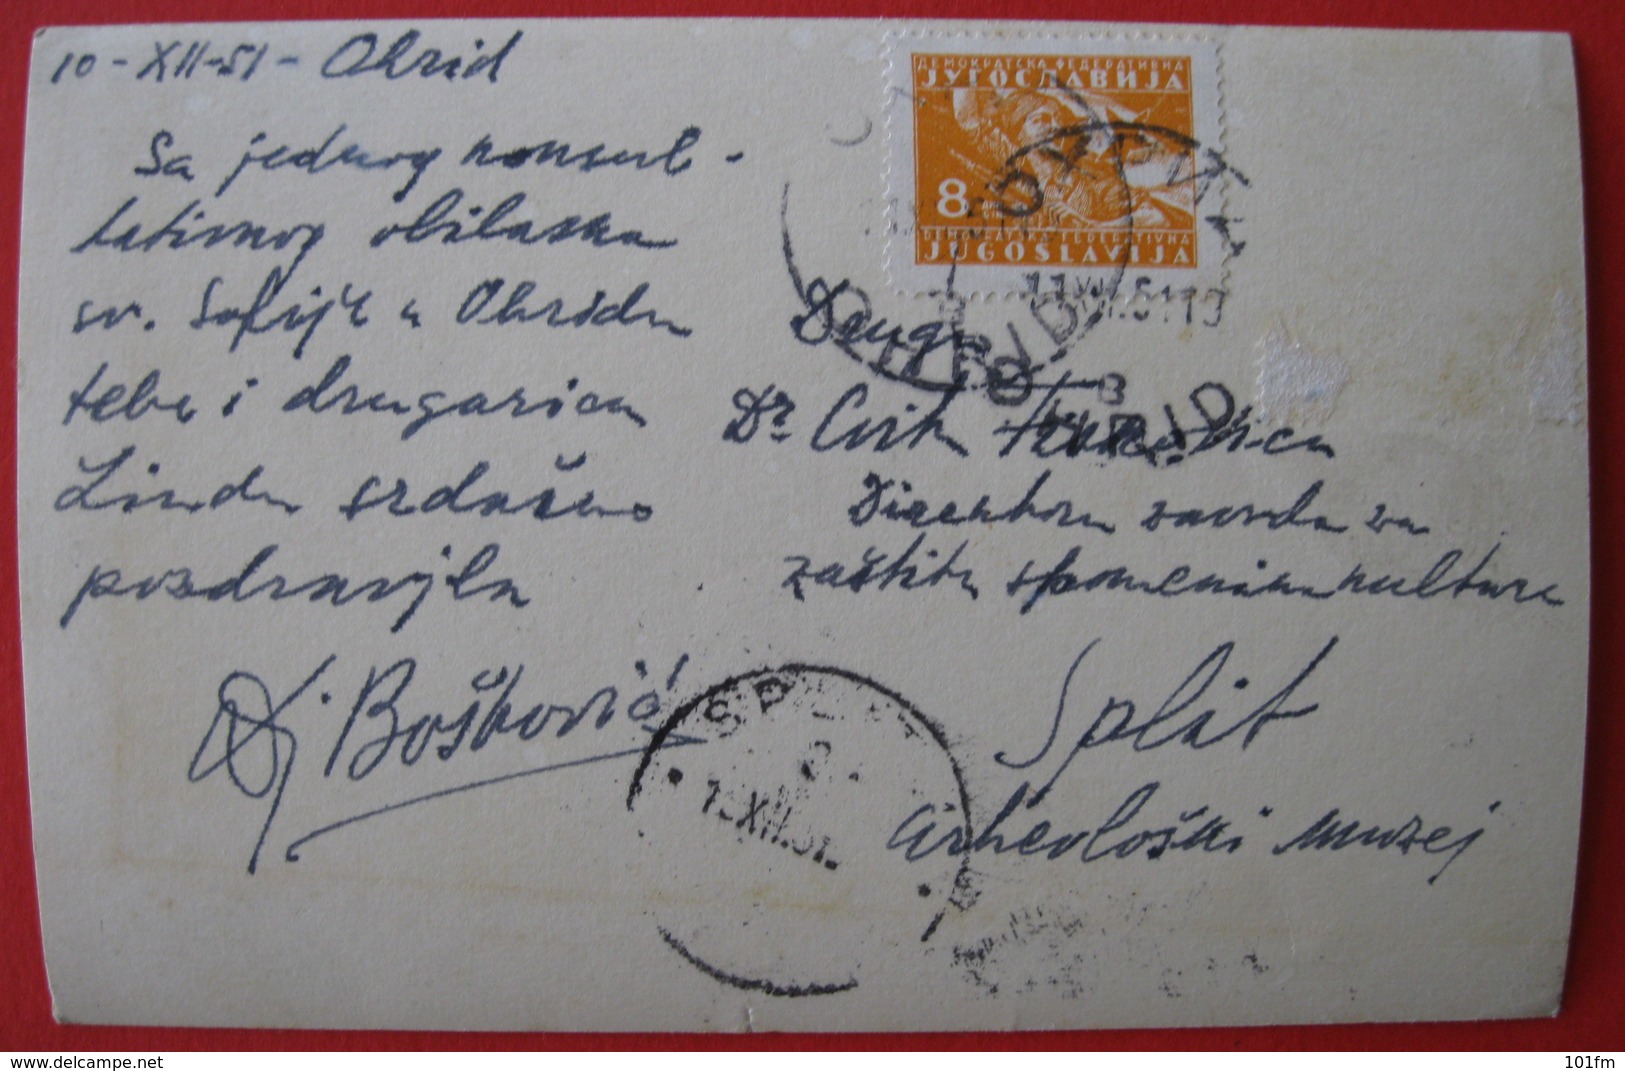 10-XII-51- Ohrid
Sa jednog konsul-
tativnog obilaska
sv. Sofije u Ohridu
tebe i drugaricu
Lindu srdačno
pozdravlja
Dj. Bošković
ДЕМОКРАТСКА ФЕДЕРАТИВНА
ЈУГОСЛАВИЈА
8
DEMOKRATSKA FEDERATIVNA
JUGOSLAVIJA
OHRID
OHRID
Drugu
Dr Cvitu
Direktoru zavoda za
zaštitu spomenika kulture
Split
Arheološki muzej
SPLIT
2
XII.51
delcampe.net
101fm